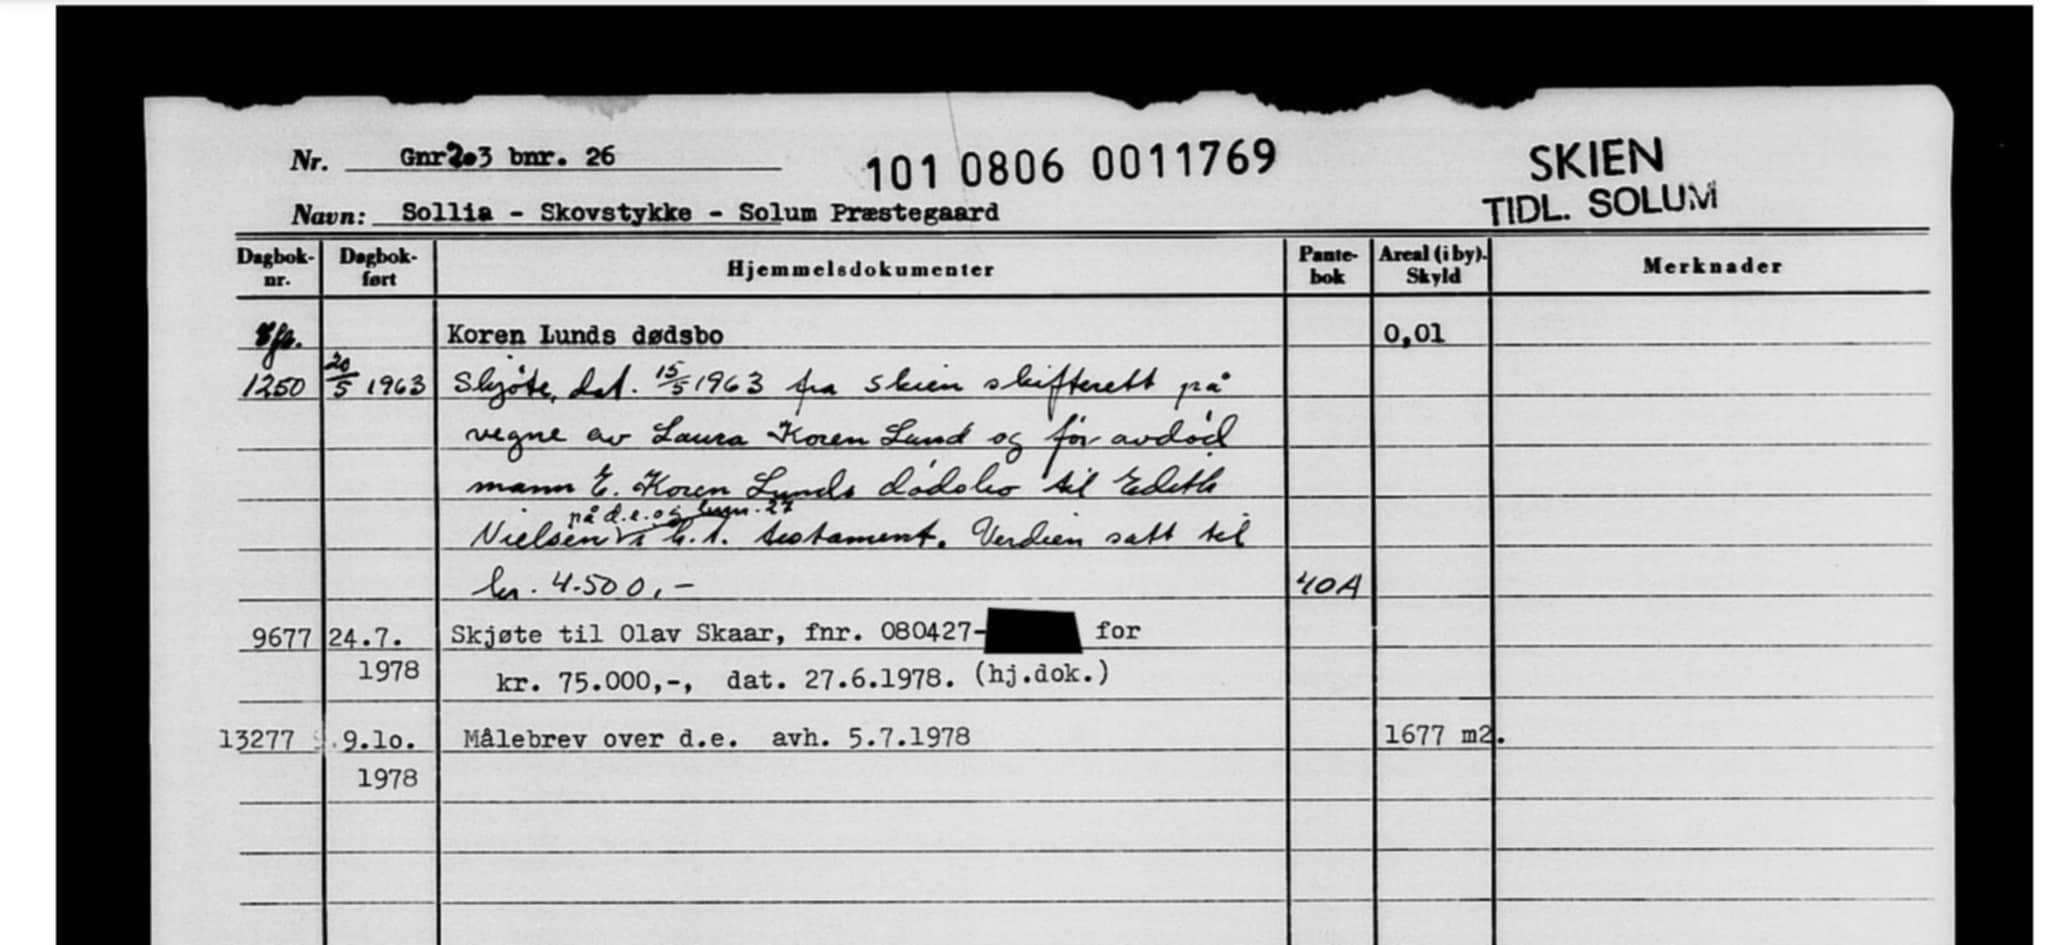 Nr. Gnr203 bnr. 26
101 0806 0011769
SKIEN
TIDL. SOLUM
Navn: Sollia - Skovstykke - Solum Præstegaard
Dagbok-nr. Dagbok-ført Hjemmelsdokumenter Pante-bok Areal (i by). Skyld Merknader
Koren Lunds dødsbo 0,01
1250 20/5 1963 Skjøte, dat. 15/5 1963 fra Skien skifterett på
vegne av Laura Koren Lund og før avdød
mann E. Koren Lunds dødsbo til Edith
på d.e. og bnr. 27
Nielsen testament. Verdien satt til
kr. 4.500,- 40A
9677 24.7. Skjøte til Olav Skaar, fnr. 080427- for
1978 kr. 75.000,-, dat. 27.6.1978. (hj.dok.)
13277 9.10. Målebrev over d.e. avh. 5.7.1978 1677 m2.
1978